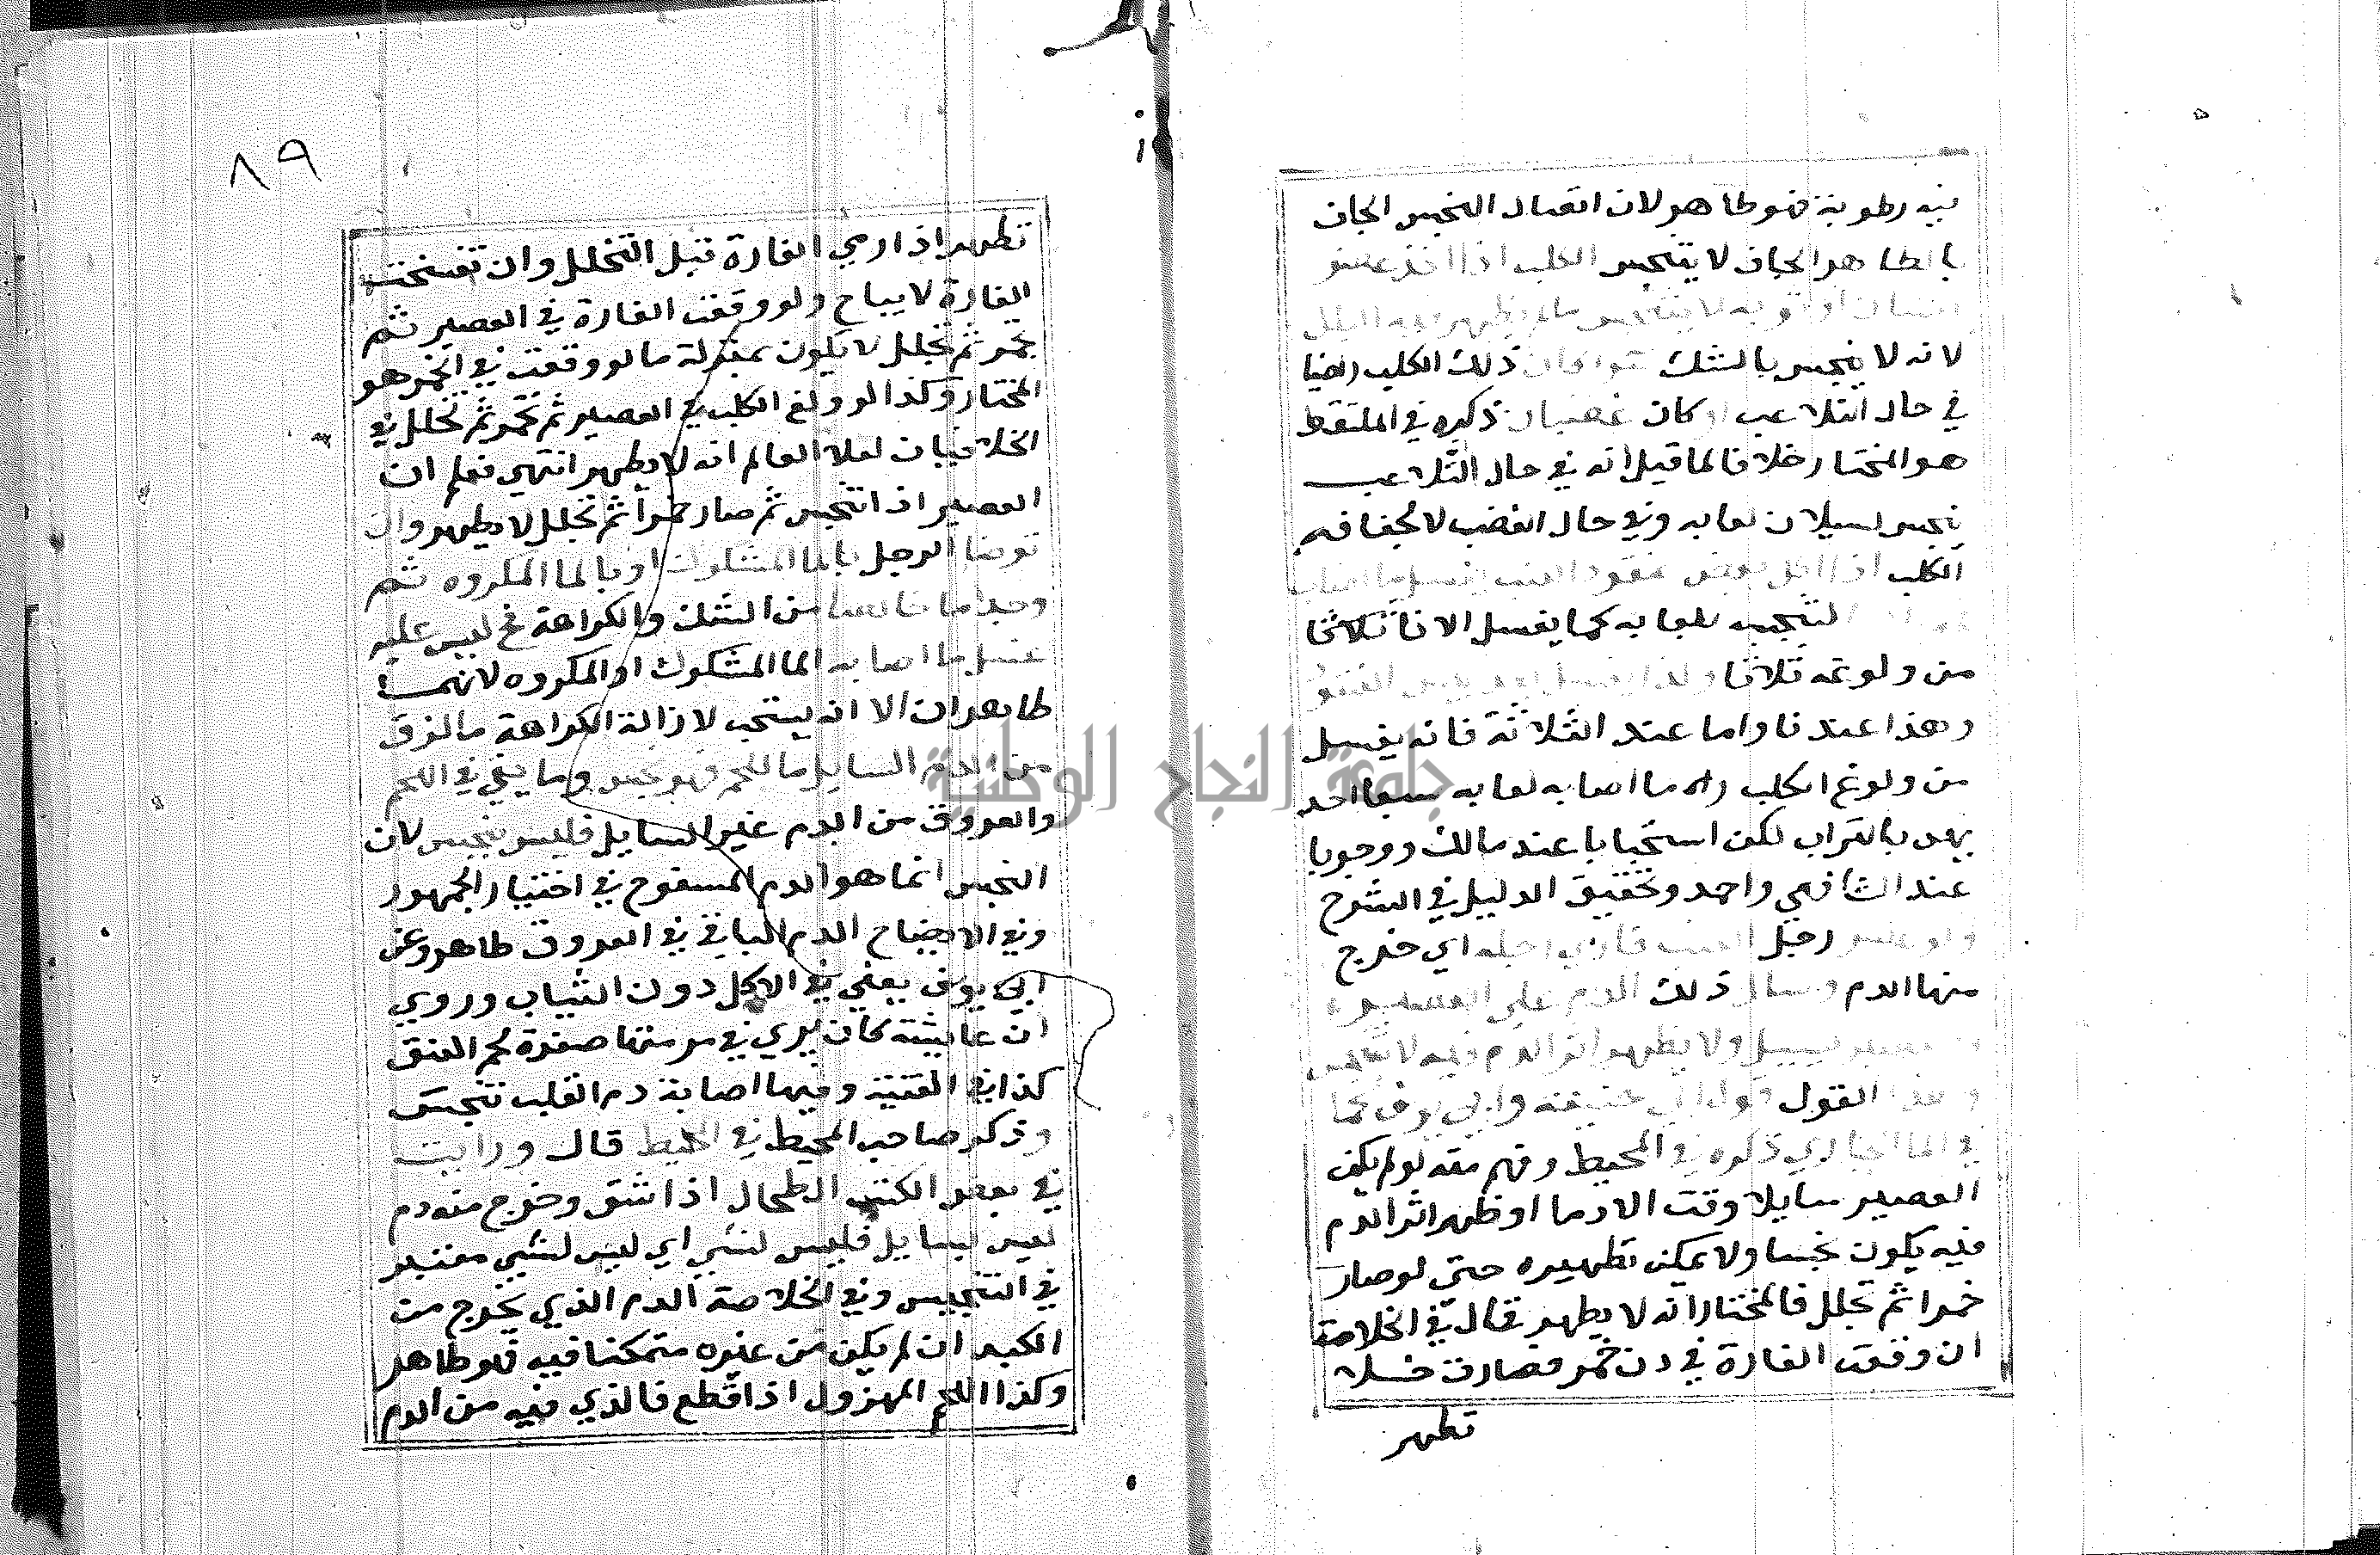 فيه رطوبة فهو طاهر لان اتصال النجس الجاف
بالطاهر الجاف لا ينجس الكلب اذا اخذ عضو
انسان او ثوبه لا يتنجس ما لم يظهر فيه البلل
لانه لا ينجس بالشك سوا كان ذلك الكلب راضيا
في حال التلاعب او كان غضبان ذكره في الملتقط
هو المختار خلافا لما قيل انه في حال التلاعب
نجس لسيلان لعابه وفي حال الغضب لا لجفافه
الكلب اذا اكل بعض عنقود العنب يغسل ما اصاب
لتنجسه بلعابه كما يغسل الانا ثلاثا
من ولوغه ثلاثا وكذا يغسل بعد يبس العنقود
وهذا عندنا واما عند الثلاثة فانه يغسل
من ولوغ الكلب وكل ما اصابه لعابه سبعا احد
يهن بالتراب لكن استحبابا عند مالك ووجوبا
عند الشافعي واحمد وتحقيق الدليل في الشرح
ولو عصر رجل العنب فادمي رجله اي خرج
منها الدم وسال ذلك الدم علي العصير
والعصير يسيل ولا يظهر اثر الدم فيه لا يتنجس
وهذا القول قول ابي حنيفة وابي يوسف كما
في الما الجاري ذكره في المحيط وفهم منه لو لم يكن
العصير سايلا وقت الادما او ظهر اثر الدم
فيه يكون نجسا ولا يمكن تطهيره حتي لو صار
خمرا ثم تخلل فالمختار انه لا يطهر قال في الخلاصة
ان وقعت الفارة في دن خمر فصارت خلا
تطهر
٨٩
تطهر اذا رمي الفارة قبل التخلل وان تفسخت
الفارة لا يباح ولو وقعت الفارة في العصير ثم
تخمر ثم تخلل لا يكون بمنزلة ما لو وقعت في الخمر هو
المختار وكذا لو ولغ الكلب في العصير ثم تخمر ثم تخلل في
الخلافيات لعلا العالم انه لا يطهر انتهي فعلم ان
العصير اذا تنجس ثم صار خمرا ثم تخلل لا يطهر وان
توضا الرجل بالما المشكوك او بالما المكروه ثم
وجد ما خالصا من الشك والكراهة فح ليس عليه
غسل ما اصابه الما المشكوك او المكروه لانهما
طاهران الا انه يستحب لازالة الكراهة ما لزق
من الدم السايل باللحم فهو نجس وما بقي في اللحم
والعروق من الدم غير السايل فليس بنجس لان
النجس انما هو الدم المسفوح في اختيار الجمهور
وفي الايضاح الدم الباقي في العروق طاهر وعن
ابي يوسف يعفي في الاكل دون الثياب وروي
ان عايشة كان يري في برمتها صفرة لحم العنق
كذا في القنية وفيها اصابة دم القلب تنجس
وذكر صاحب المحيط في المحيط قال ورايت
في بعض الكتب الطحال اذا شق وخرج منه دم
ليس بسايل فليس بشي اي ليس بشي معتبر
في التنجيس وفي الخلاصة الدم الذي يخرج من
الكبد ان لم يكن من غيره متمكنا فيه فهو طاهر
وكذا اللحم المهزول اذا قطع فالذي فيه من الدم
جامعة النجاح الوطنية